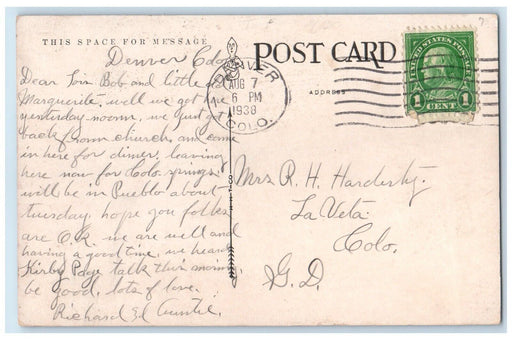 THIS SPACE FOR MESSAGE
POST CARD
ADDRESS
UNITED STATES POSTAGE
1 CENT 1
DENVER
AUG 7
6 PM
1938
COLO.
Denver Colo
Dear Bob and little
Marguerite, well we got here
yesterday noon, we just got
back from church, and came
in here for diner, leaving
here now for Colo. springs,
will be in Pueblo about
tuesday, hope you folks
are O.K. we are well and
having a good time, we heard
Kirby Page talk this morning
be good, lots of love.
Richard Auntie.
Mrs R. H. Hardesty.
La Veta.
Colo.
G. D.